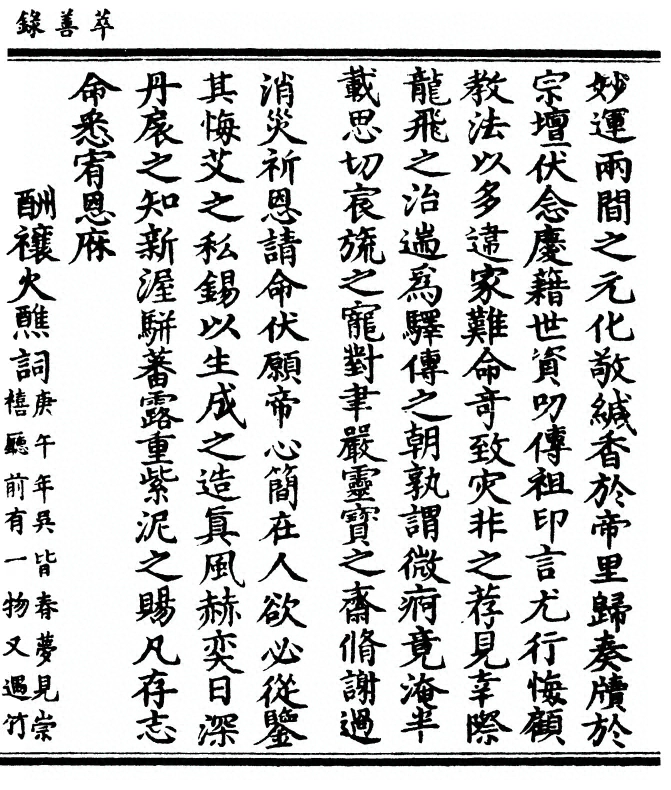 萃善錄
妙運兩間之元化敬緘香於帝里歸奏牘於
宗壇伏念慶籍世資叨傳祖印言尤行悔顧
教法以多違家難命奇致灾非之荐見幸際
龍飛之治遄爲驛傳之朝孰謂微痾竟淹半
載思切宸旒之寵對聿嚴靈寶之齋脩謝過
消災祈恩請命伏願帝心簡在人欲必從鑒
其悔艾之私錫以生成之造眞風赫奕日深
丹扆之知新渥駢蕃露重紫泥之賜凡存志
命悉宥恩庥
酬禳火醮詞
庚午年吳皆春夢見崇
禧聽前有一物又遇竹